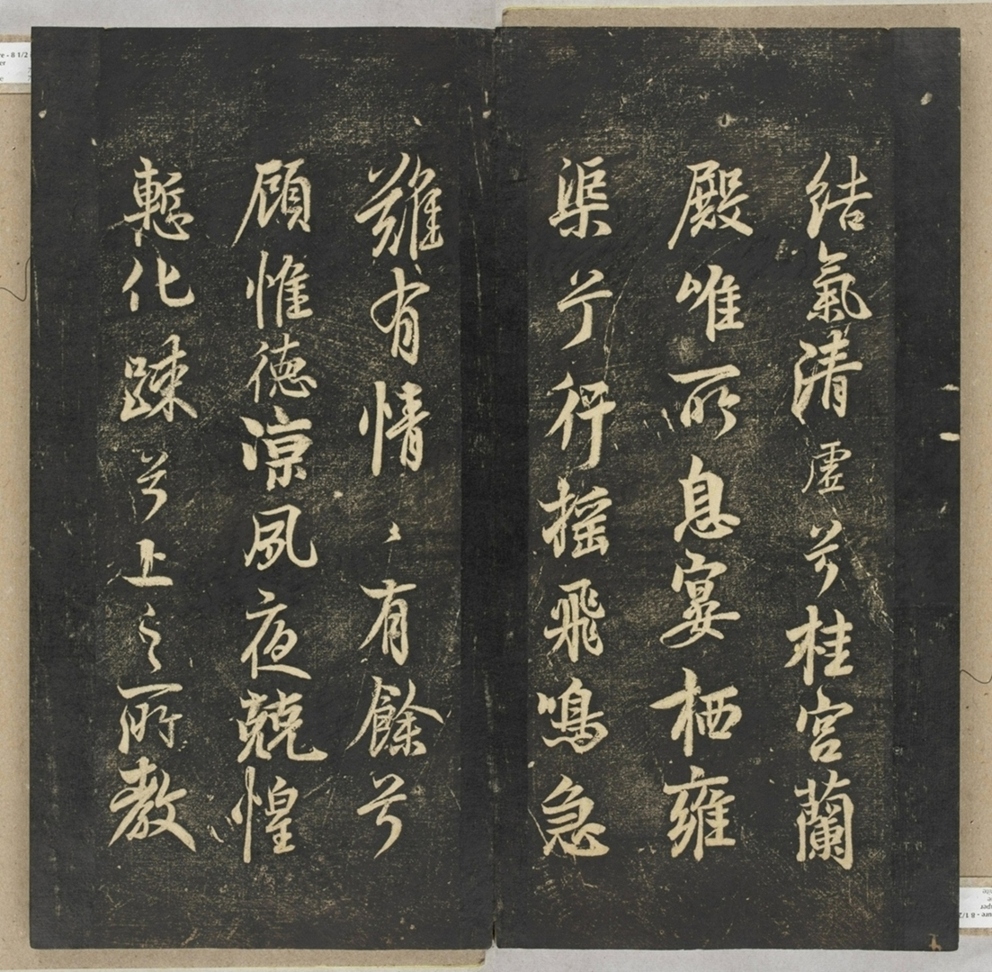 結氣清虛兮桂宮蘭
殿唯所息宴栖雍
渠兮行搖飛鳴急
難有情〻有餘兮
顧惟德涼夙夜兢惶
慙化踈兮上之所教